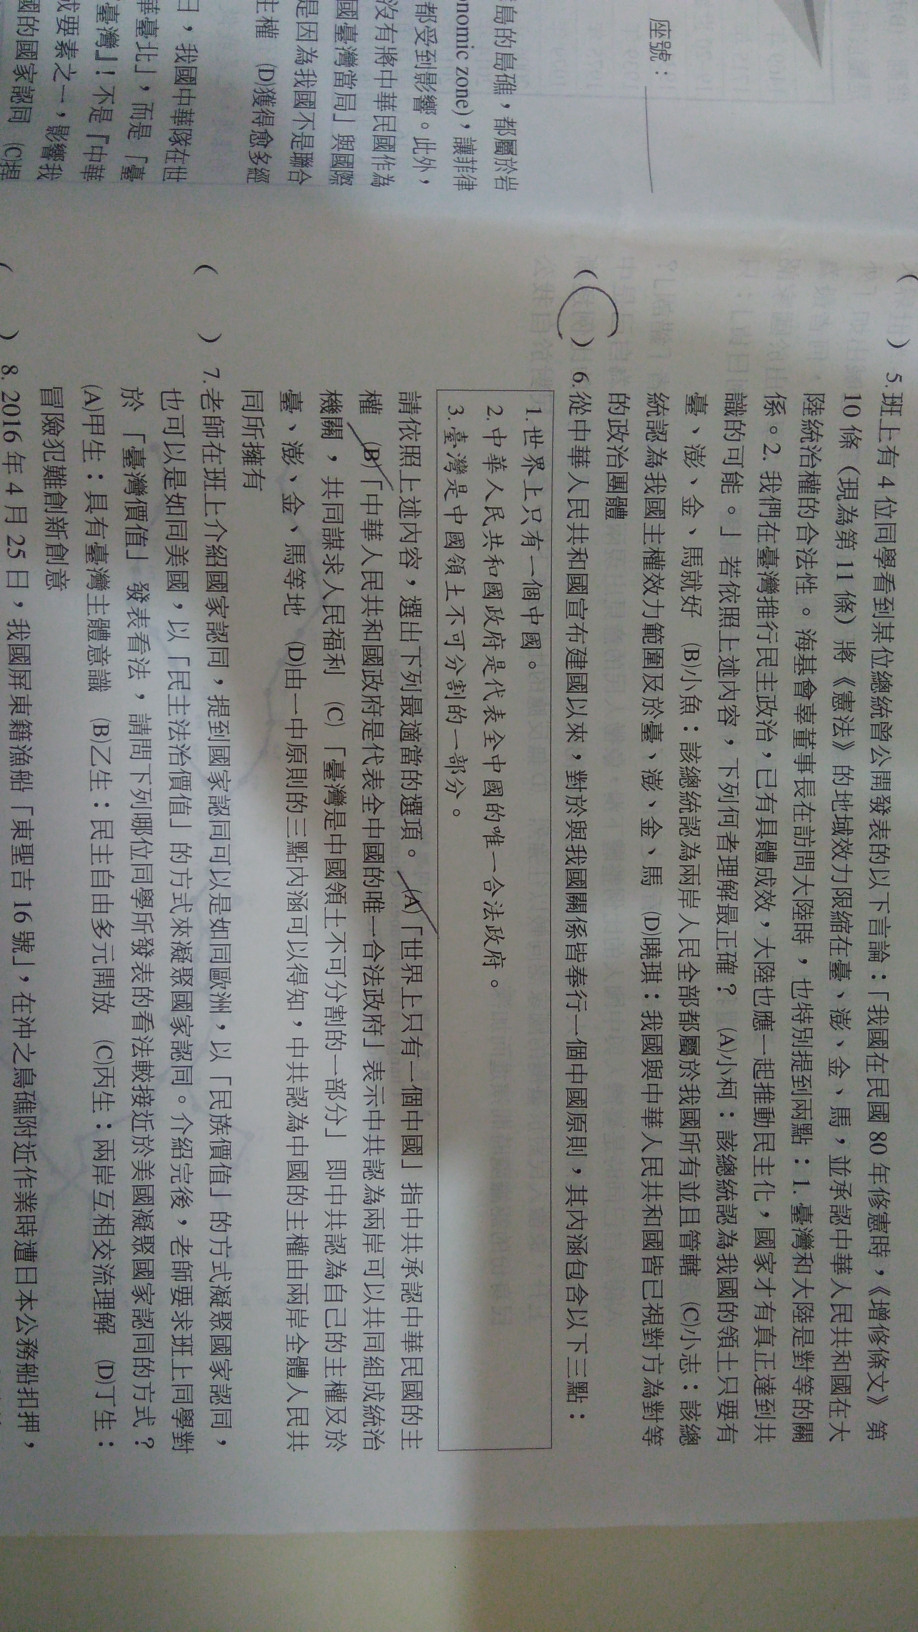 座號：
島的島礁，都屬於岩
nomic zone)，讓菲律
都受到影響。此外，
沒有將中華民國作為
國臺灣當局」與國際
是因為我國不是聯合
主權 (D)獲得愈多經
日，我國中華隊在世
華臺北」，而是「臺
臺灣』！不是『中華
成要素之一，影響我
國的國家認同 (C)捍
( ) 5.班上有 4 位同學看到某位總統曾公開發表的以下言論：「我國在民國 80 年修憲時，《增修條文》第
10 條（現為第 11 條）將《憲法》的地域效力限縮在臺、澎、金、馬，並承認中華人民共和國在大
陸統治權的合法性。海基會辜董事長在訪問大陸時，也特別提到兩點：1. 臺灣和大陸是對等的關
係。2. 我們在臺灣推行民主政治，已有具體成效，大陸也應一起推動民主化，國家才有真正達到共
識的可能。」若依照上述內容，下列何者理解最正確？ (A)小柯：該總統認為我國的領土只要有
臺、澎、金、馬就好 (B)小魚：該總統認為兩岸人民全部都屬於我國所有並且管轄 (C)小志：該總
統認為我國主權效力範圍及於臺、澎、金、馬 (D)曉琪：我國與中華人民共和國皆已視對方為對等
的政治團體
( ) 6.從中華人民共和國宣布建國以來，對於與我國關係皆奉行一個中國原則，其內涵包含以下三點：
1.世界上只有一個中國。
2.中華人民共和國政府是代表全中國的唯一合法政府。
3.臺灣是中國領土不可分割的一部分。
請依照上述內容，選出下列最適當的選項。 (A)「世界上只有一個中國」指中共承認中華民國的主
權 (B)「中華人民共和國政府是代表全中國的唯一合法政府」表示中共認為兩岸可以共同組成統治
機關，共同謀求人民福利 (C)「臺灣是中國領土不可分割的一部分」即中共認為自己的主權及於
臺、澎、金、馬等地 (D)由一中原則的三點內涵可以得知，中共認為中國的主權由兩岸全體人民共
同所擁有
( ) 7.老師在班上介紹國家認同，提到國家認同可以是如同歐洲，以「民族價值」的方式凝聚國家認同，
也可以是如同美國，以「民主法治價值」的方式來凝聚國家認同。介紹完後，老師要求班上同學對
於「臺灣價值」發表看法，請問下列哪位同學所發表的看法較接近於美國凝聚國家認同的方式？
(A)甲生：具有臺灣主體意識 (B)乙生：民主自由多元開放 (C)丙生：兩岸互相交流理解 (D)丁生：
冒險犯難創新創意
( ) 8. 2016 年 4 月 25 日，我國屏東籍漁船「東聖吉 16 號」，在沖之鳥礁附近作業時遭日本公務船扣押，